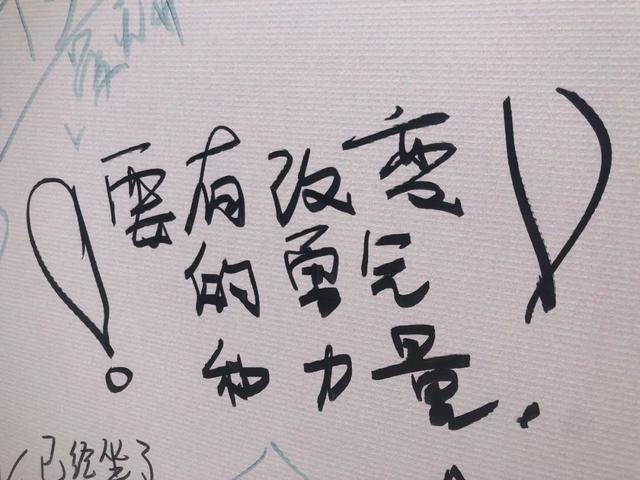 需有改变
的勇气
和力量.
已经坐了